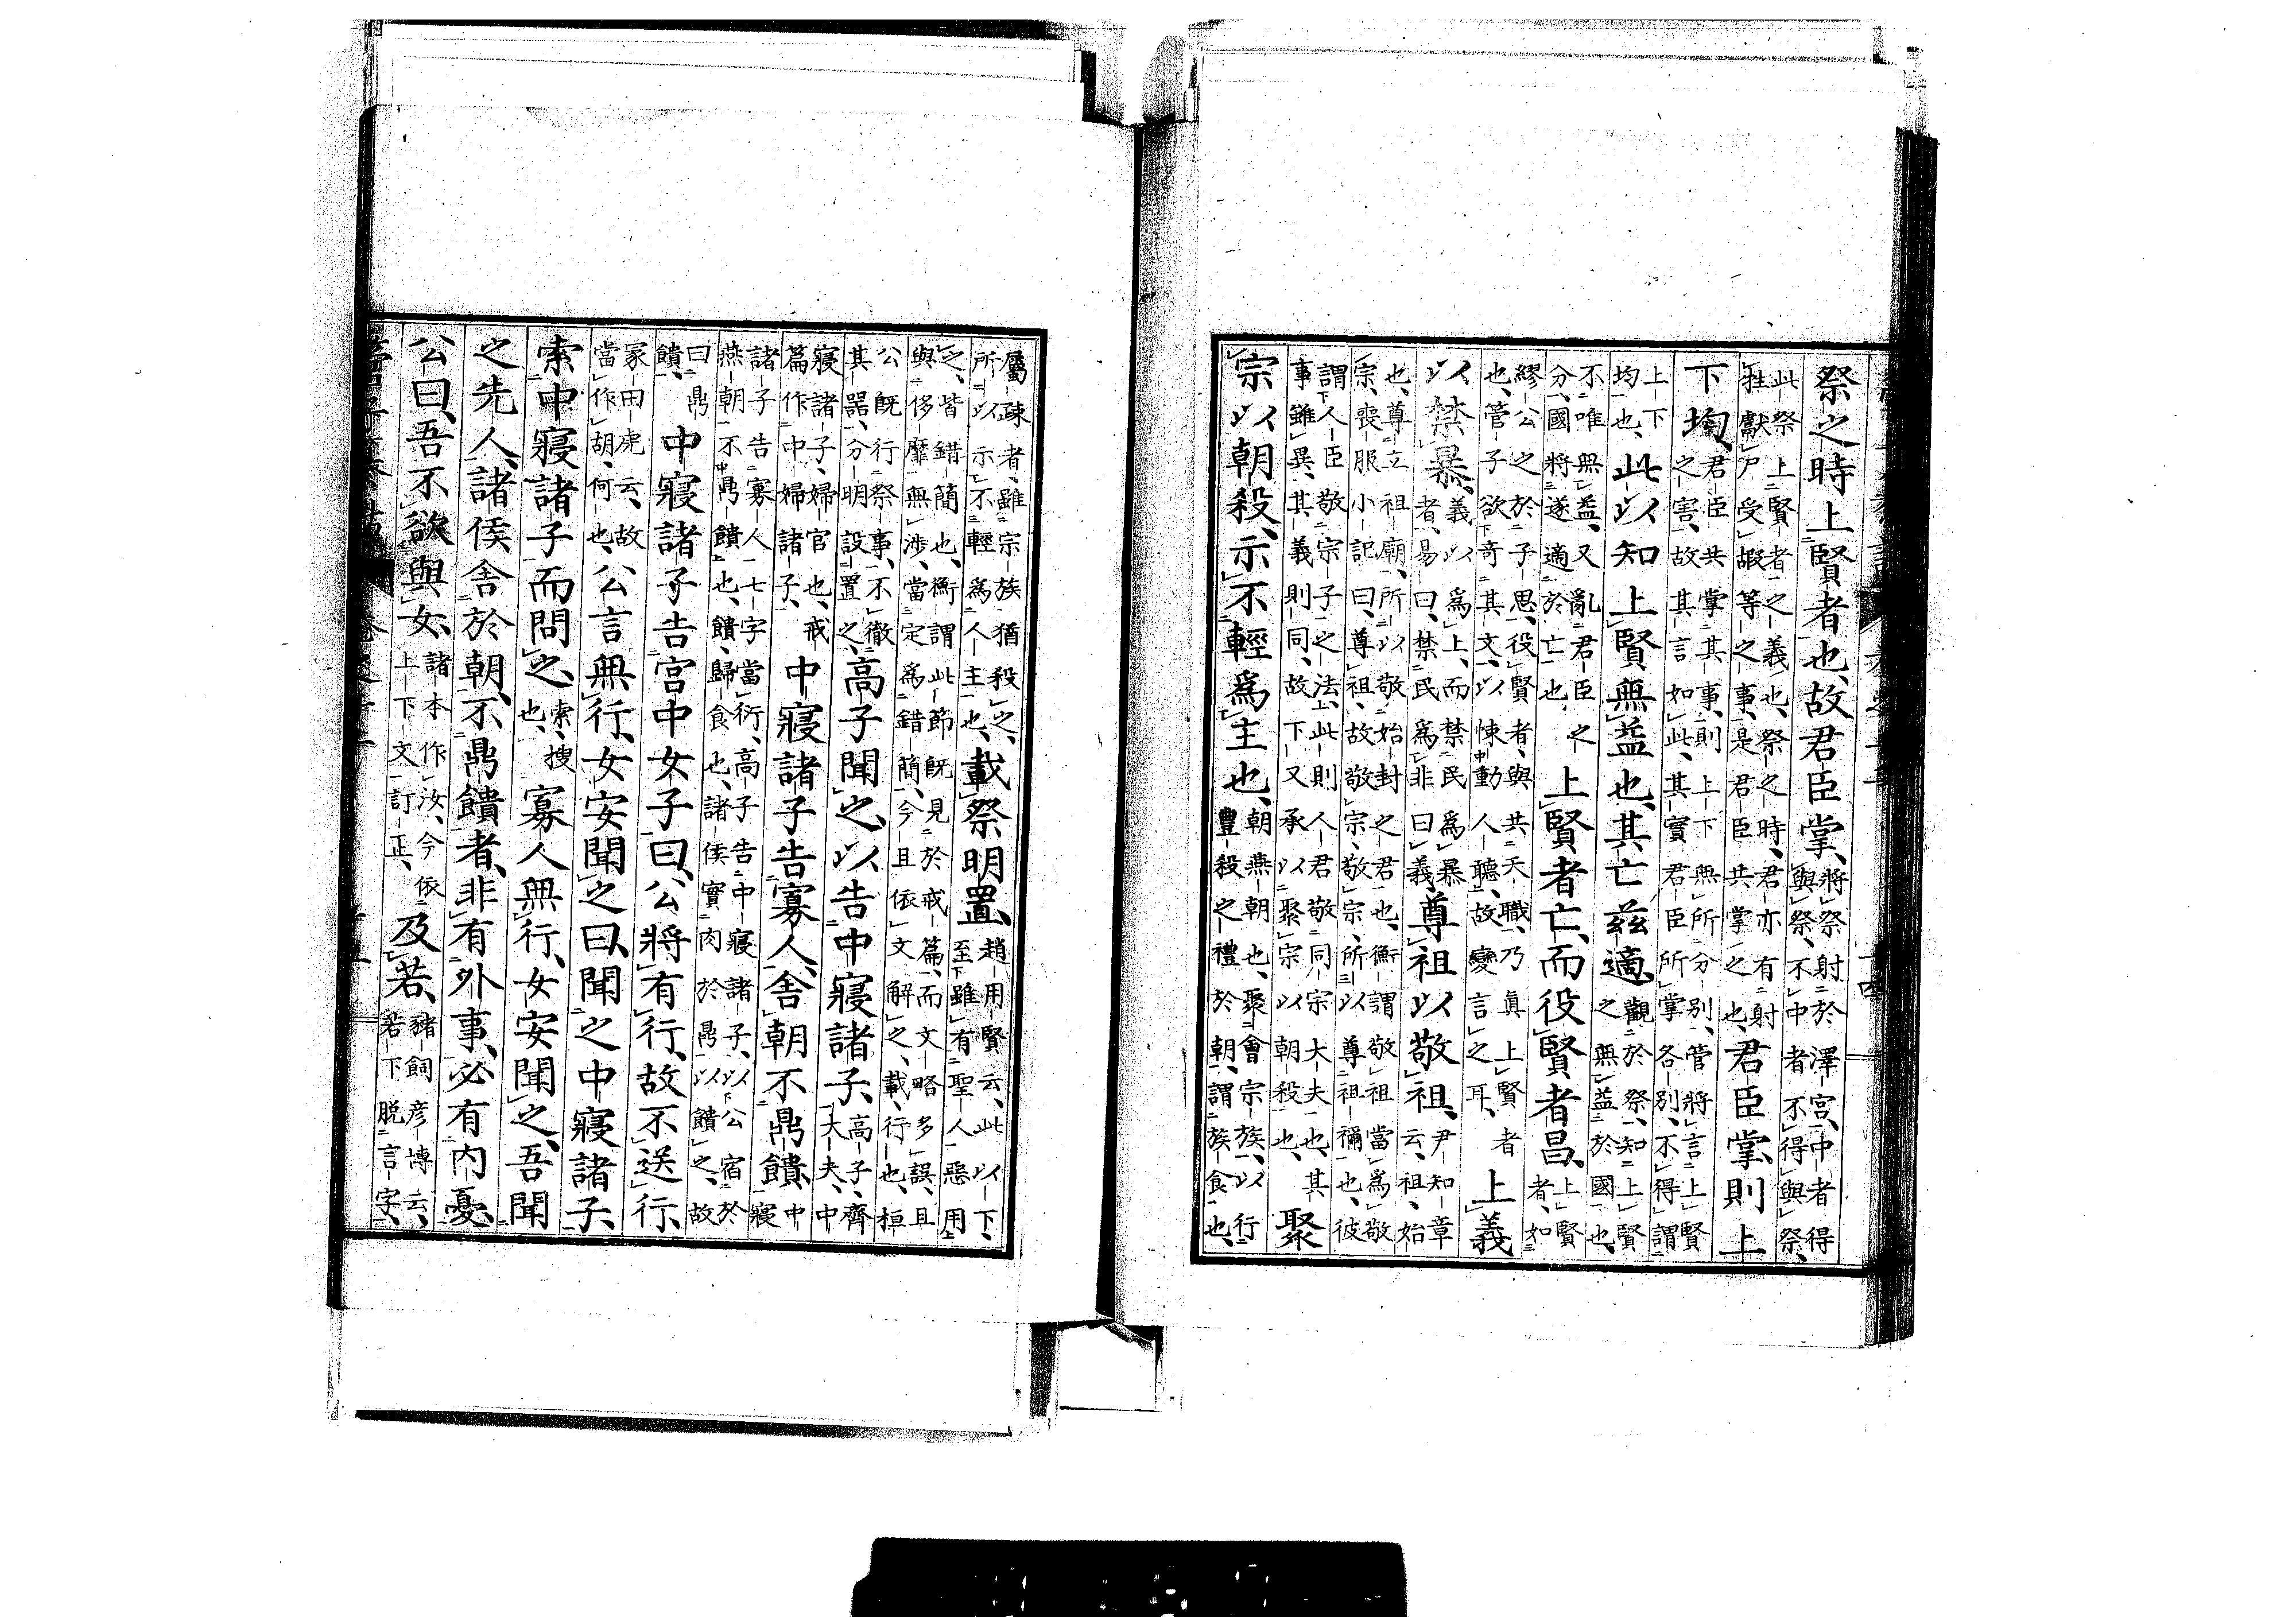 祭之時上賢者也、故君臣掌、將祭射於澤宮、中者得與祭、不中者不得與祭、
此祭上賢者之義也、祭之時、君亦有射牲獻尸受嘏等之事、是君臣共掌之也、君臣掌、則上
下均、君臣共掌其事、則上下無所分別、管將言上賢之害、故其言如此、其實君臣所掌各別、不得謂
上下均也、此以知上賢無益也、其亡茲適、觀於祭、知上賢之無益於國也、
不唯無益、又亂君臣之分、國將遂適於亡也、上賢者亡、而役賢者昌、上賢者、如
繆公之於子思、役賢者、與共天職、乃眞上賢者也、管子欲奇其文、以悚動人聽、故變言之耳、上義
以禁暴、義以爲上、而禁民爲暴者、易曰、禁民爲非曰義、尊祖以敬祖、尹知章云、祖、始
也、尊立祖廟、所以敬始封之君也、衡謂敬祖當爲敬宗、喪服小記曰、尊祖、故敬宗、敬宗、所以尊祖禰也、彼
謂人臣敬宗子之法、此則人君敬同宗大夫也、其事雖異、其義則同、故下又承以聚宗以朝殺也、聚
宗以朝殺、示不輕爲主也、朝燕朝也、聚會宗族、以行豐殺之禮於朝、謂族食也、
屬疎者、雖宗族猶殺之、所以示不輕爲人主也、載祭明置、趙用賢云、此以下、至雖有聖人惡用
之、皆錯簡也、衡謂此節既見於戒篇、而文略多誤、且與侈靡無涉、當定爲錯簡、今且依文解之、載、行也、桓
公既行祭事、不徹其器、分明設置之、高子聞之、以告中寢諸子、高子、齊大夫、中
寢諸子、婦官也、戒篇作中婦諸子、中寢諸子告寡人、舍朝不鼎饋、中寢
諸子告寡人七字當衍、高子告中寢諸子、以公宿於燕朝不鼎饋也、饋、歸食也、諸侯實肉於鼎以饋之、故
曰鼎饋、中寢諸子告宮中女子曰、公將有行、故不送行、
冢田虎云、故當作胡、何也、公言無行、女安聞之曰、聞之中寢諸子、
索中寢諸子而問之、索、搜也、寡人無行、女安聞之、吾聞
之先人、諸侯舍於朝、不鼎饋者、非有外事、必有內憂、
公曰、吾不欲與女、諸本作汝、今依上下文訂正、及若、豬飼彥博云、若下脫言字、